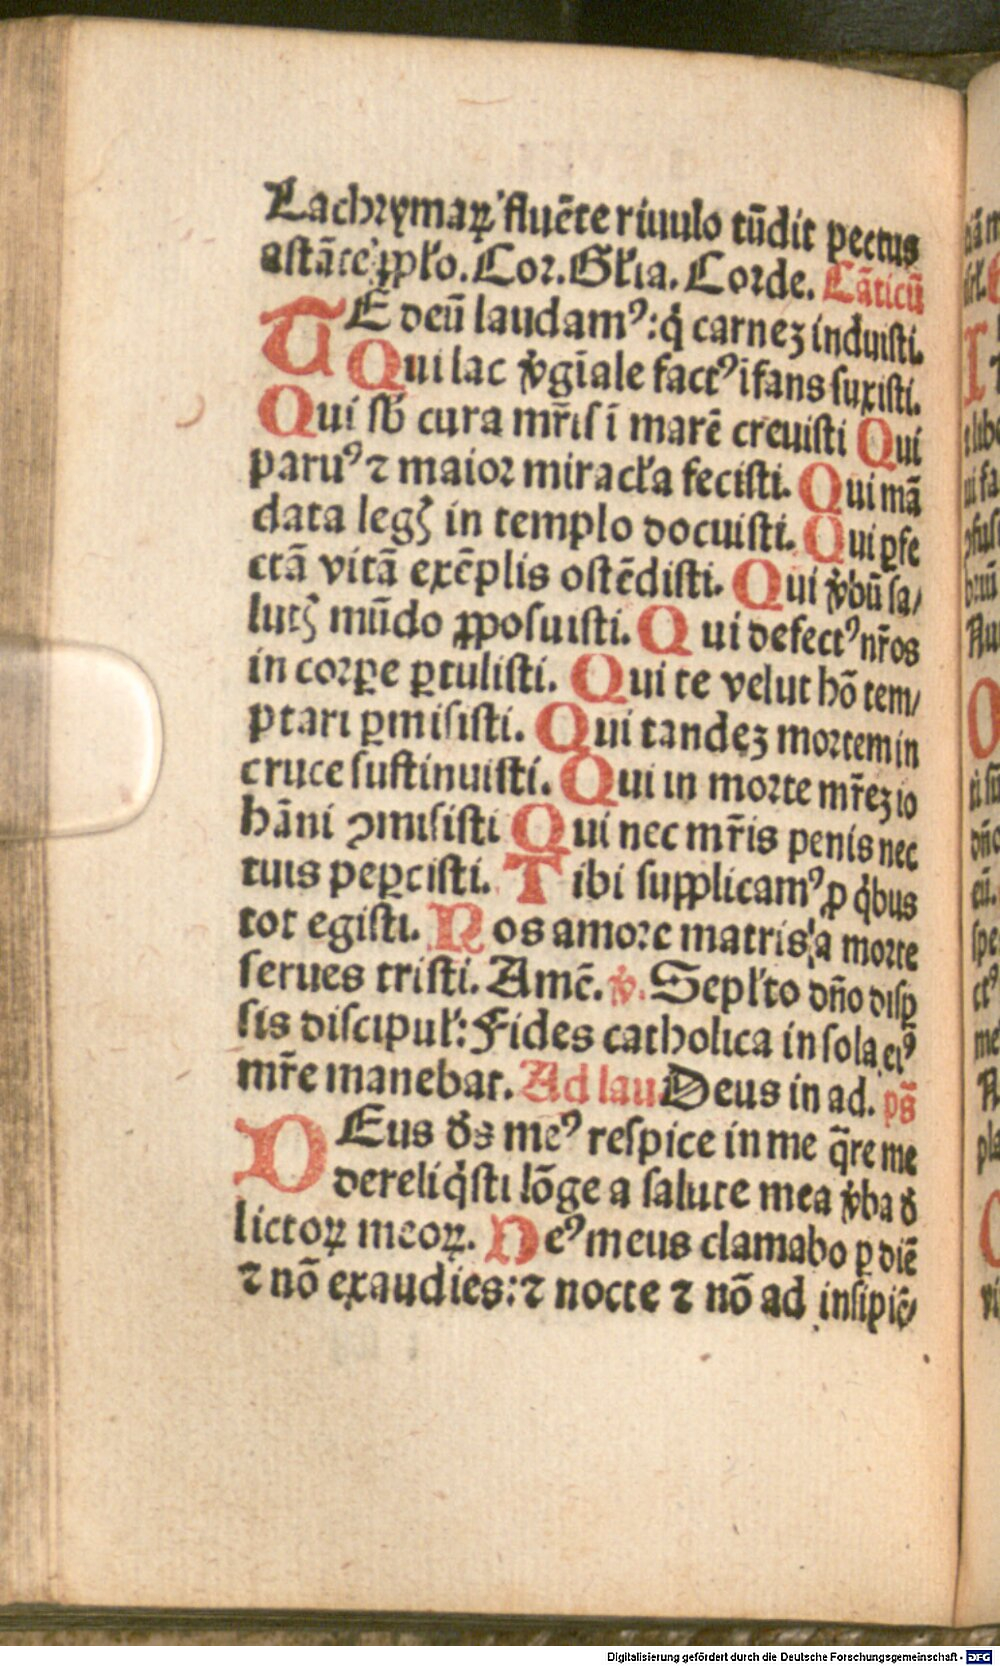 Lachrymaꝝ fluēte riuulo tūdit pectus
astāte ꝓpl'o. Cor. Gl'ia. Corde. Cāticū
TE deū laudamꝰ: q̇ carneꝫ induisti.
Qui lac v̇gīale factꝰ ifans suxisti.
Qui sb̄ cura mr̄is ī marē creuisti Qui
paruꝰ ⁊ maior miracl'a fecisti. Qui mā
data legꝭ in templo docuisti. Qui ꝑfe
ctā vitā exēplis ostēdisti. Qui v̇bū sa/
lutꝭ mūdo ꝓposuisti. Qui defectꝰ nr̄os
in corꝑe ꝑtulisti. Qui te velut hō tem/
ptari ꝑmisisti. Qui tandeꝫ mortem in
cruce sustinuisti. Qui in morte mr̄eꝫ io
hāni ꝯmisisti Qui nec mr̄is penis nec
tuis peꝑcisti. Tibi supplicamꝰ ꝓ q̇bus
tot egisti. Nos amore matris a morte
serues tristi. Amē. v̇. Sepl'to dn̄o disꝑ
sis discipul': Fides catholica in sola eiꝰ
mr̄e manebat. Ad lau Deus in ad. ps̄
DEus ds̄ meꝰ respice in me q̄re me
dereliq̇sti lōge a salute mea v̇ba d̄
lictoꝝ meoꝝ. Deꝰ meus clamabo ꝑ diē
⁊ nō exaudies: ⁊ nocte ⁊ nō ad insipiē/
Digitalisierung gefördert durch die Deutsche Forschungsgemeinschaft - DFG